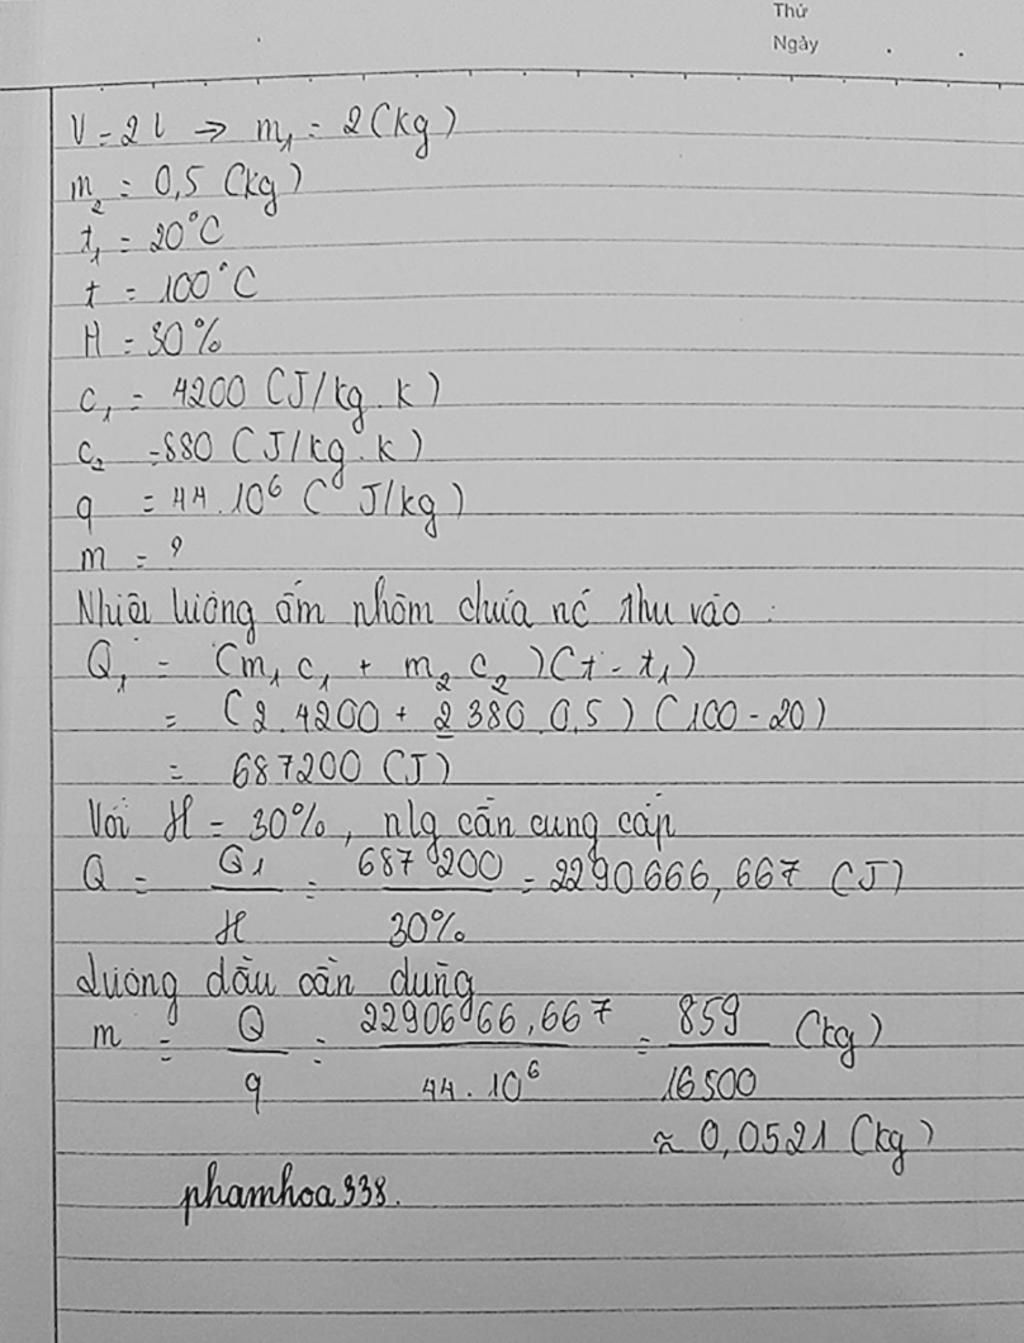 Thứ
Ngày
V = 2 l → m₁ = 2 (kg)
m₂ = 0,5 (kg)
t₁ = 20°C
t = 100°C
H = 30%
c₁ = 4200 (J/kg.K)
c₂ = 880 (J/kg.K)
q = 44.10⁶ (J/kg)
m = ?
Nhiệt lượng ấm nhôm chứa nc thu vào :
Q₁ = (m₁ c₁ + m₂ c₂)(t - t₁)
= (2.4200 + 2 380.0,5) (100 - 20)
= 687200 (J)
Với H = 30%, nlg cần cung cấp
Q = Q₁/H = 687 200/30% = 2290666,667 (J)
Lượng dầu cần dùng
m = Q/q = 2290666,667/44.10⁶ = 859/16500 (kg)
≈ 0,0521 (kg)
phamhoa338.